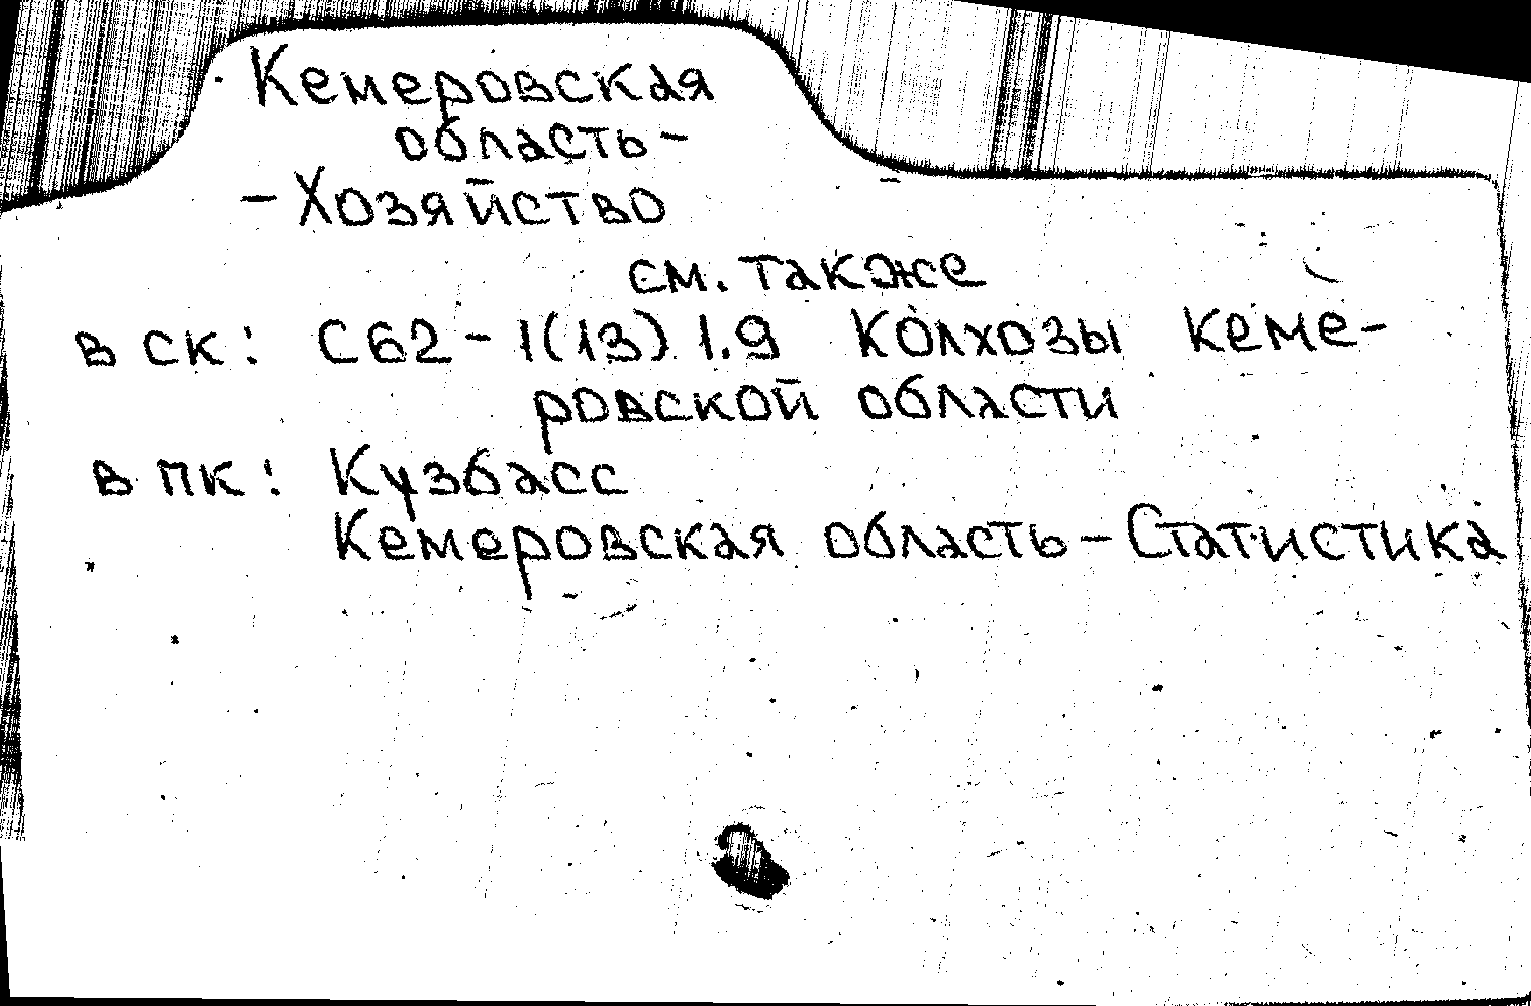 Кемеровская
область-
-Хозяйство
см. также
в СК: С62-1(13)1.9 Колхозы Кеме-
ровской области
в ПК: Кузбасс
Кемеровская область-Статистика